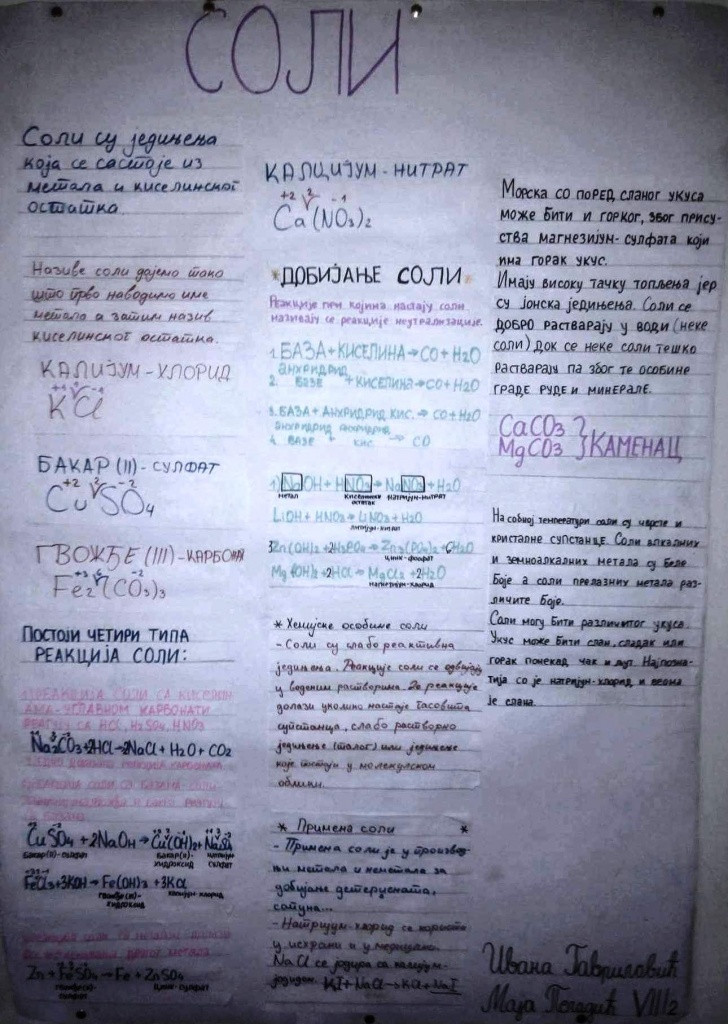 СОЛИ
Соли су једињења
која се састоје из
метала и киселинског
остатка.
Називе соли дајемо тако
што прво наводимо име
метала а затим назив
киселинског остатка.
КАЛИЈУМ-ХЛОРИД
+1 -1
KCl
БАКАР (II)-СУЛФАТ
+2 2 -2
CuSO4
ГВОЖЂЕ (III)-КАРБОНАТ
+3 6 -2
Fe2(CO3)3
ПОСТОЈИ ЧЕТИРИ ТИПА
РЕАКЦИЈА СОЛИ:
РЕАКЦИЈА СОЛИ СА
УГЛАВНОМ КАРБОНАТИ
РЕАГУЈУ СА HCl, H2SO4, HNO3
Na2CO3+2HCl→2NaCl+H2O+CO2
CuSO4+2NaOH→Cu(OH)2+Na2SO4
бакар(II)-сулфат бакар(II)- натријум
хидроксид сулфат
FeCl3+3KOH→Fe(OH)3+3KCl
гвожђе(III)- калијум-хлорид
хидроксид
Zn+FeSO4→Fe+ZnSO4
гвожђе(II)- цинк-сулфат
сулфат
КАЛЦИЈУМ-НИТРАТ
+2 2 -1
Ca(NO3)2
*ДОБИЈАЊЕ СОЛИ
Реакције при којима настају соли
називају се реакције неутрализације.
1. БАЗА+КИСЕЛИНА→СО+H2O
2. АНХИДРИД БАЗЕ +КИСЕЛИНА→СО+H2O
3. БАЗА+АНХИДРИД КИС.→СО+H2O
4. АНХИДРИД БАЗЕ + АНХИДРИД КИС. → СО
1) NaOH+HNO3→NaNO3+H2O
метал киселински остатак натријум-нитрат
LiOH+HNO3→LiNO3+H2O
литијум-нитрат
3Zn(OH)2+2H3PO4→Zn3(PO4)2+6H2O
цинк-фосфат
Mg(OH)2+2HCl→MgCl2+2H2O
магнезијум-хлорид
* Хемијске особине соли
- Соли су слабо реактивна
једињења. Реакције соли се одвијају
у воденим растворима. До реакције
долази уколико настаје гасовита
супстанца, слабо растворно
једињење (талог) или једињење
које постоји у молекулском
облику.
* Примена соли *
- Примена соли је у произвођ-
њи метала и неметала за
добијање детерџената,
сапуна...
- Натријум-хлорид се користи
у исхрани и у медицини.
NaCl се јодира са калијум-
јодидом. KI+NaCl→KCl+NaI
МОРСКА СО ПОРЕД СЛАНОГ УКУСА
МОЖЕ БИТИ И ГОРКОГ, ЗБОГ ПРИСУ-
СТВА МАГНЕЗИЈУМ-СУЛФАТА КОЈИ
ИМА ГОРАК УКУС.
ИМАЈУ ВИСОКУ ТАЧКУ ТОПЉЕЊА ЈЕР
СУ ЈОНСКА ЈЕДИЊЕЊА. СОЛИ СЕ
ДОБРО РАСТВАРАЈУ У ВОДИ (НЕКЕ
СОЛИ) ДОК СЕ НЕКЕ СОЛИ ТЕШКО
РАСТВАРАЈУ ПА ЗБОГ ТЕ ОСОБИНЕ
ГРАДЕ РУДЕ И МИНЕРАЛЕ.
CaCO3
MgCO3 } КАМЕНАЦ
На собној температури соли су чврсте и
кристалне супстанце. Соли алкалних
и земноалкалних метала су беле
боје а соли прелазних метала раз-
личите боје.
Соли могу бити различитог укуса.
Укус може бити слан, сладак или
горак понекад чак и љут. Најпозна-
тија со је натријум-хлорид и веома
је слана.
Ивана Гавриловић
Маја VIII/2